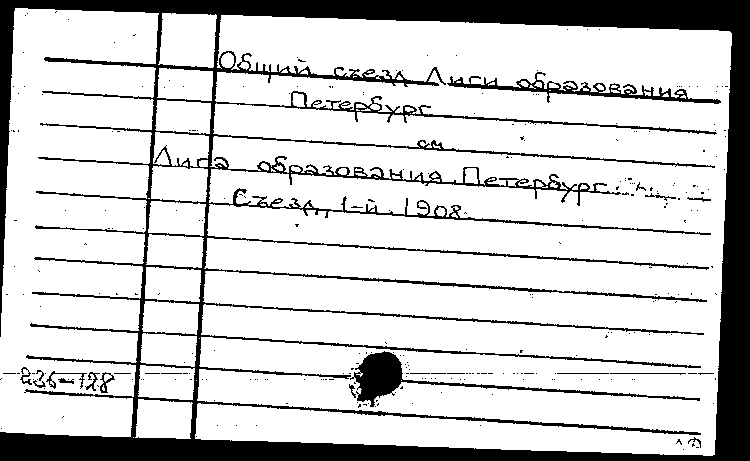 Общий съезд Лиги образования
Петербург
см.
Лига образования. Петербург.
Съезд, 1-й. 1908.
236-128